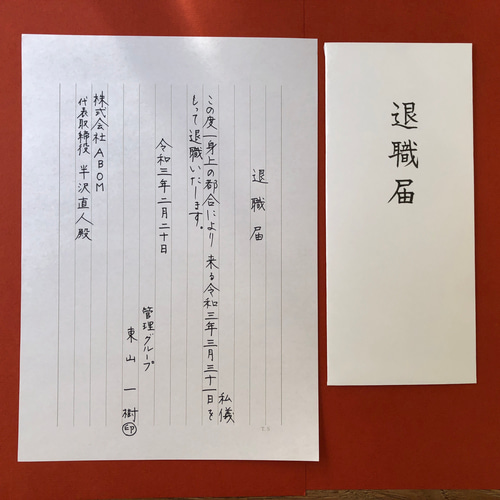 退職届
私儀
この度一身上の都合により 来る令和三年三月三十一日を
もって退職いたします。
令和三年二月二十日
管理グループ
東山一樹 ㊞
株式会社 ABOM
代表取締役 半沢直人殿
退職届